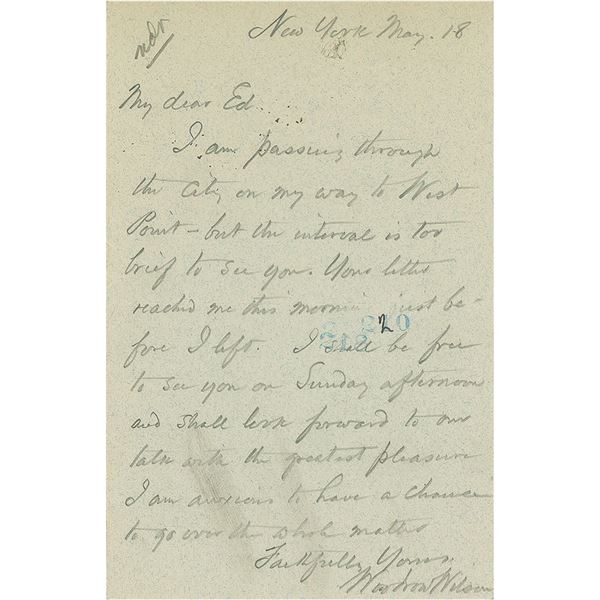 ndr
New York May. 18
My dear Ed.
I am passing through
the city on my way to West
Point – but the interval is too
brief to see you. Your letter
reached me this morning just be-
fore I left. I shall be free
to see you on Sunday afternoon
and shall look forward to our
talk with the greatest pleasure
I am anxious to have a chance
to go over the whole matter
Faithfully Yours,
Woodrow Wilson